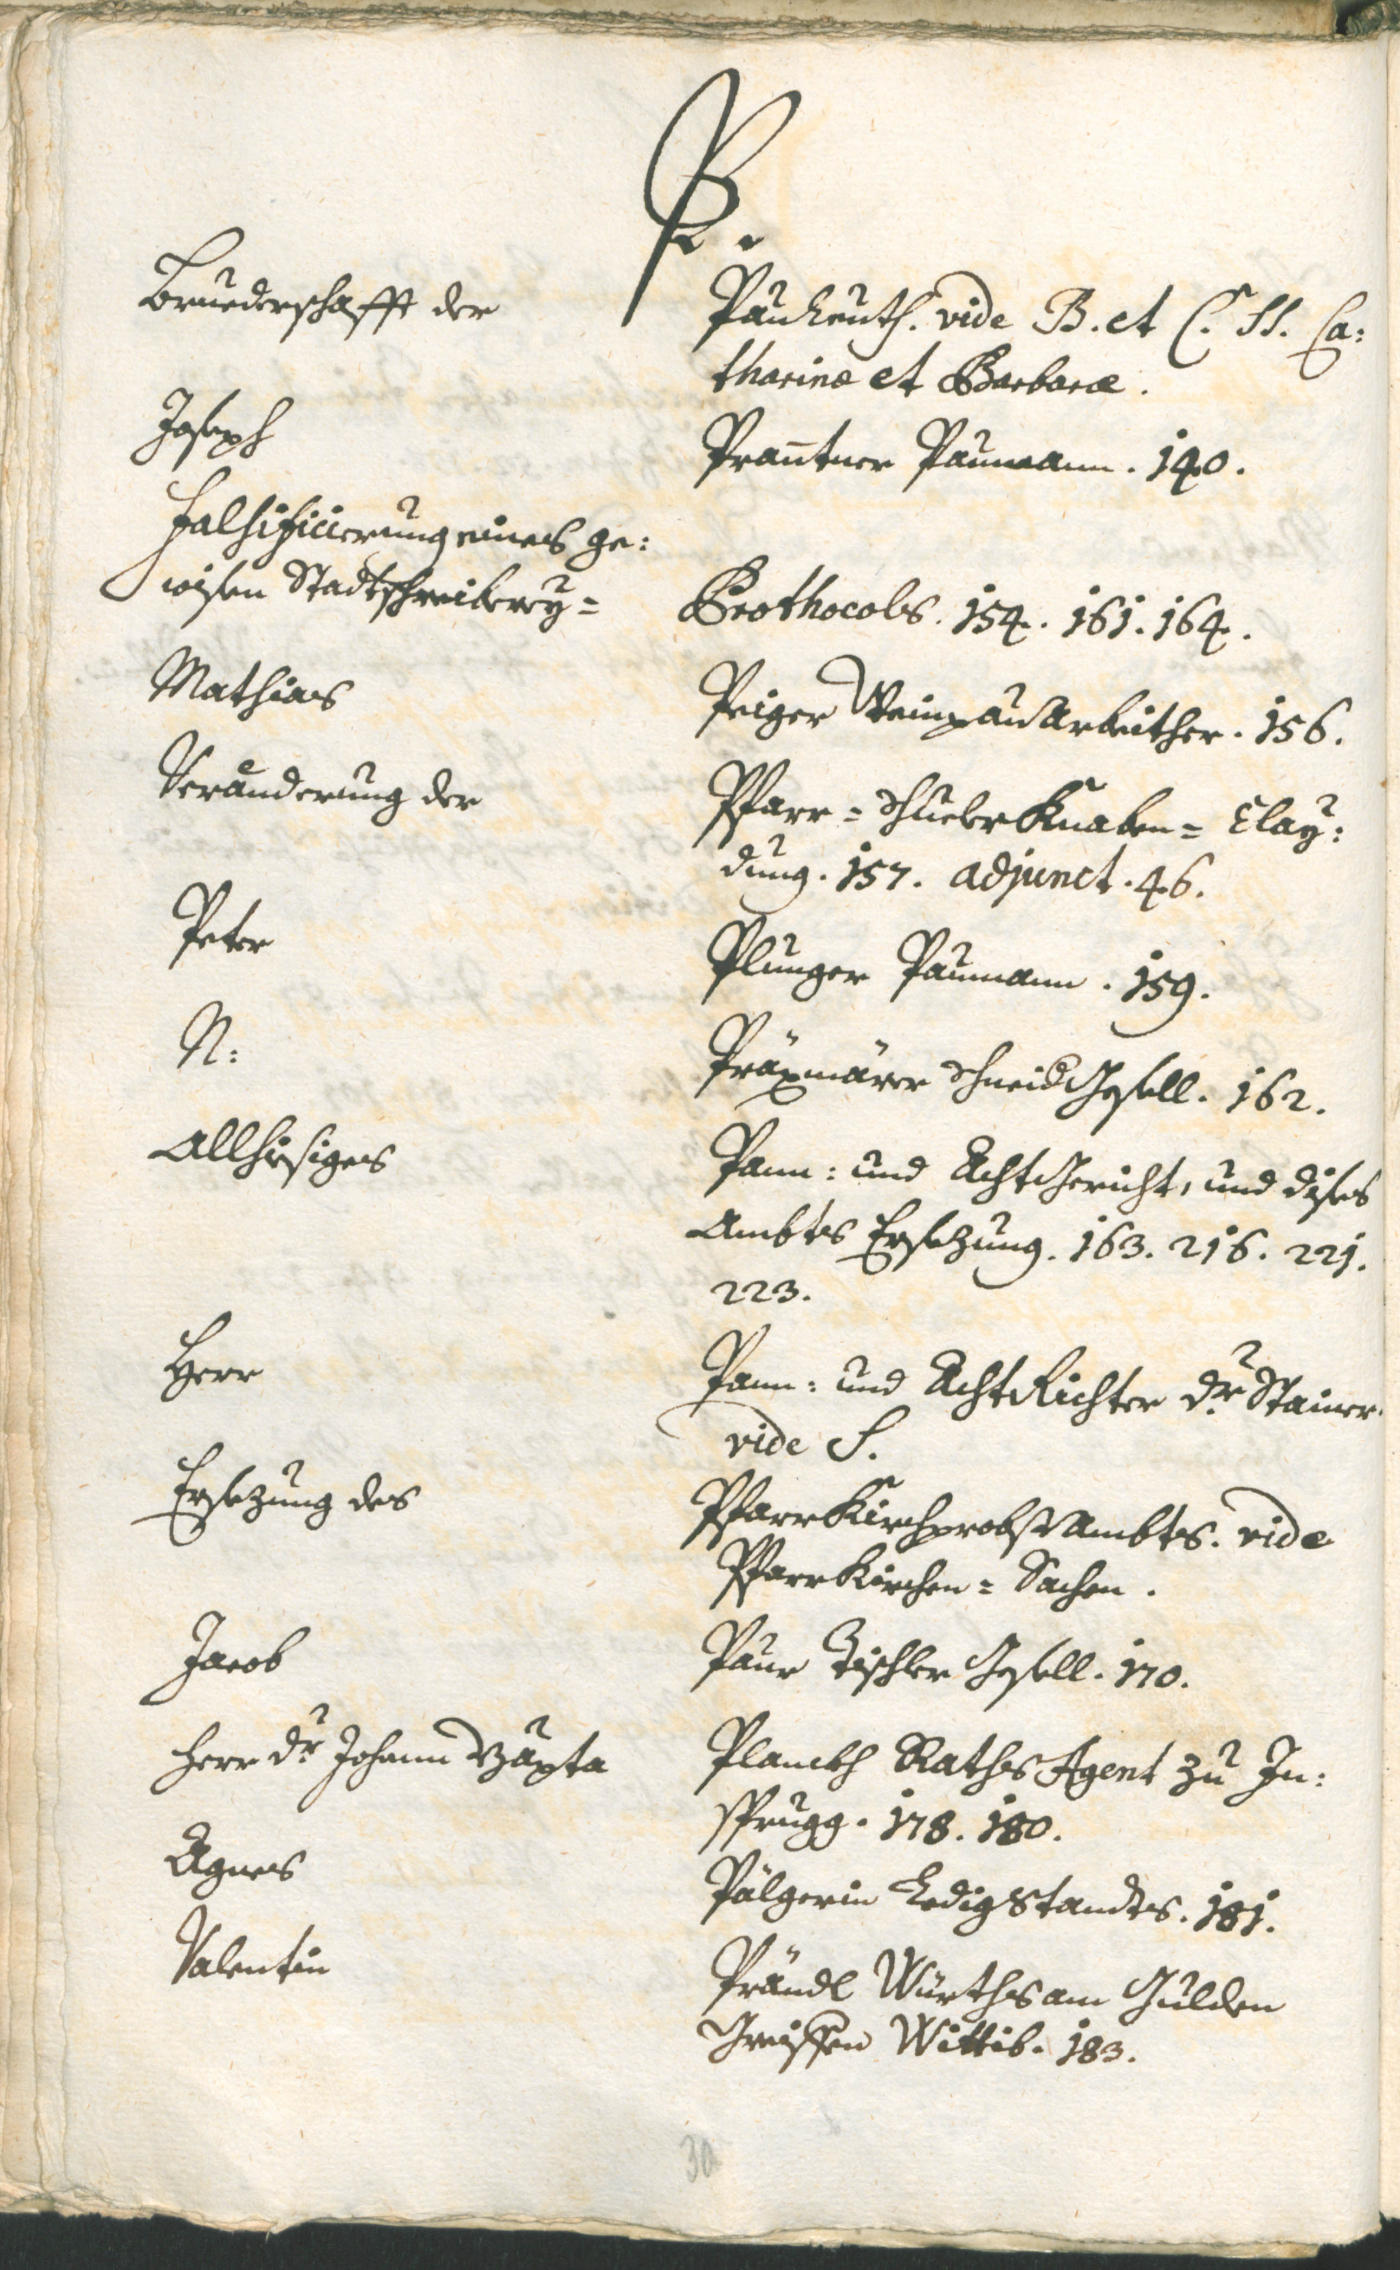 P.
Bruederschafft der Pauleuth. vide B. et C. SS. Ca:
tharinæ et Barbaræ.
Joseph Prantner Paumann. 140.
Falsificierung eines ge:
wisen Stadtschreiberey= Prothocols. 154. 161. 164.
Mathias Peiger Weinpau Arbeither. 156.
Veränderung der Pfarr= Schueler Knaben= Clay:
dung. 157. adjunct. 46.
Peter Plunger Paumann. 159.
N: Präxmärer Schneid Gesell. 162.
Allhiesiges Pann: und Acht Gericht, und dises
Ambtes Ersezung. 163. 216. 221.
223.
Herr Pann: und Acht Richter Dr. Stainer.
vide S.
Ersezung des Pfarr Kirchprobst Ambtes. vide
Pfarr Kirchen= Sachen.
Jacob Paur Tischler Gesell. 170.
Herr Dr. Johann Bapta Planckh Raths Agent zu In:
sprugg. 178. 180.
Agnes Pälgerin Ledig Standes. 181.
Valentin Prändl Würths am Gulden
Greiffen Wittib. 183.
30